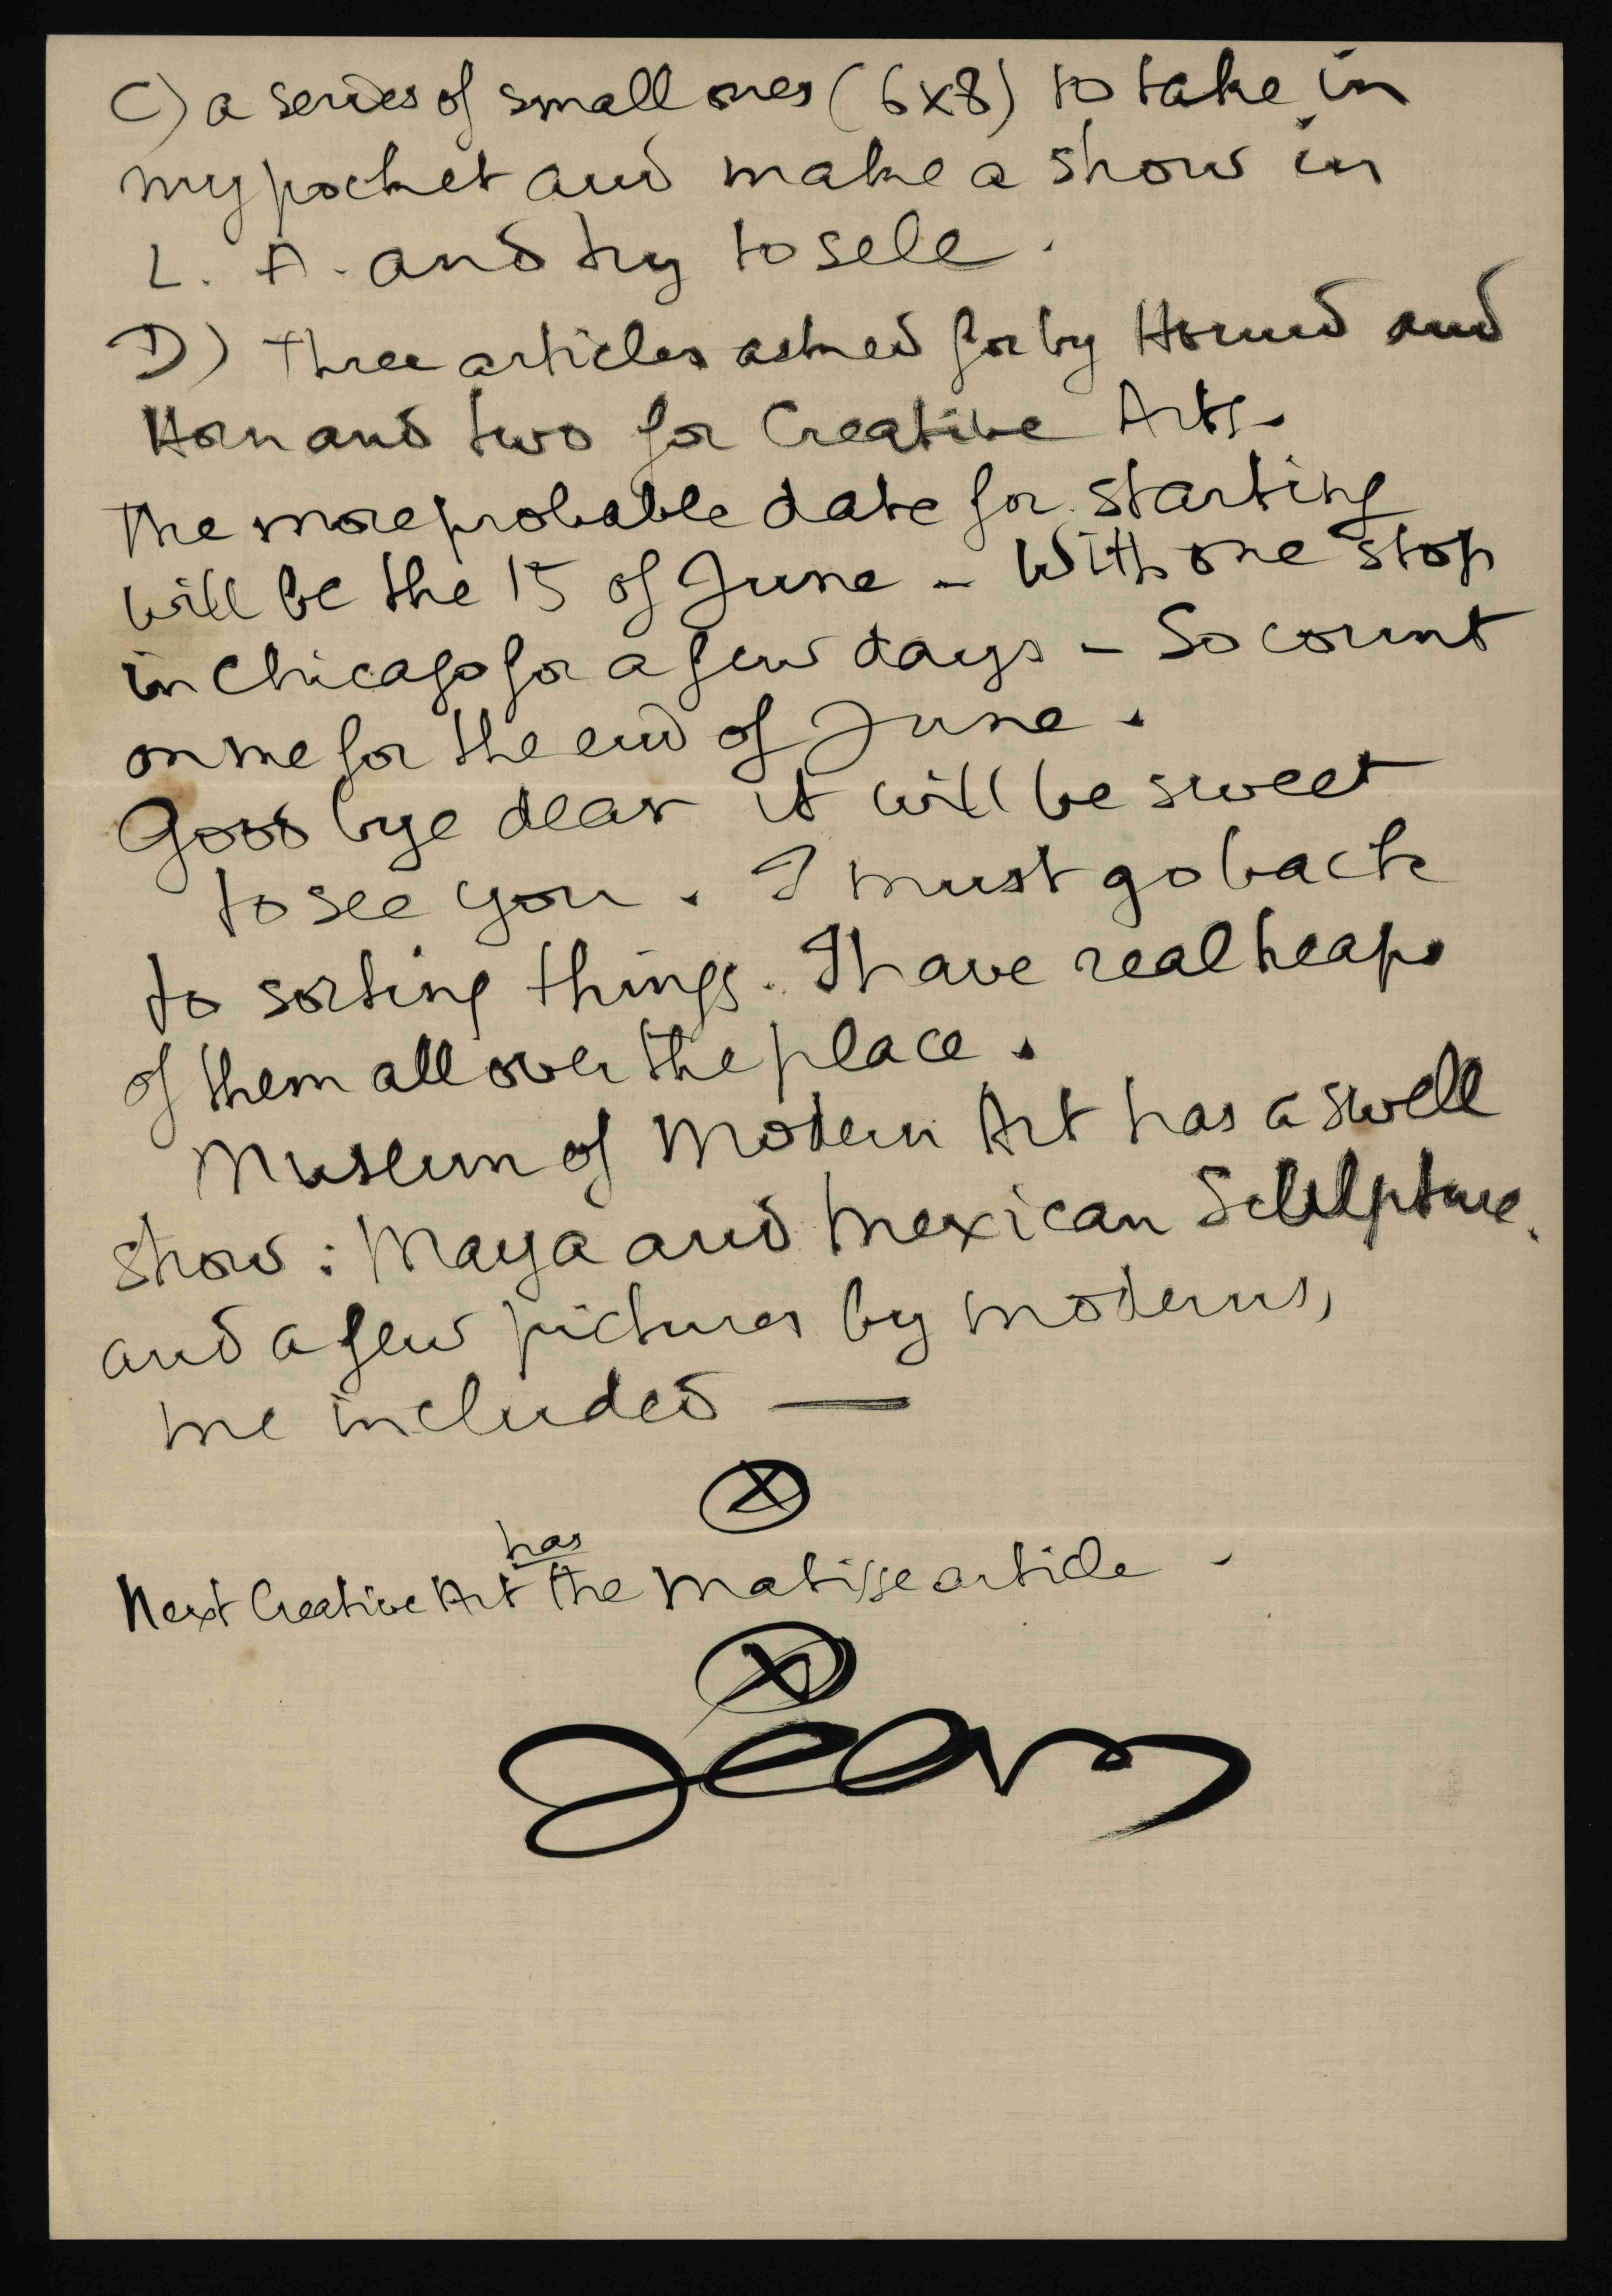 C) a series of small ones (6x8) to take in
my pocket and make a show in
L. A. and try to sell.
D) Three articles asked for by Hound and
Horn and two for Creative Arts.
The more probable date for starting
will be the 15 of June - With one stop
in Chicago for a few days - So count
on me for the end of June.
Good bye dear it will be sweet
to see you. I must go back
to sorting things. I have real heaps
of them all over the place.
Museum of Modern Art has a swell
show: Maya and Mexican Sculpture.
and a few pictures by moderns,
me included —
X
has
Next Creative Art the Matisse article -
X
Jean